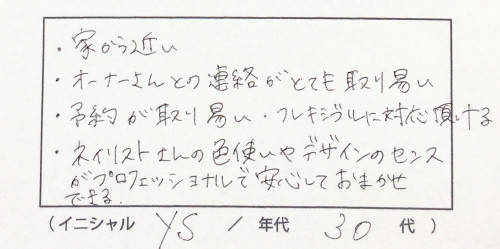 ・家から近い
・オーナーさんとの連絡がとても取り易い
・予約が取り易い・フレキシブルに対応頂ける
・ネイリストさんの色使いやデザインのセンス
がプロフェッショナルで安心しておまかせ
できる.
(イニシャル YS / 年代 30 代)